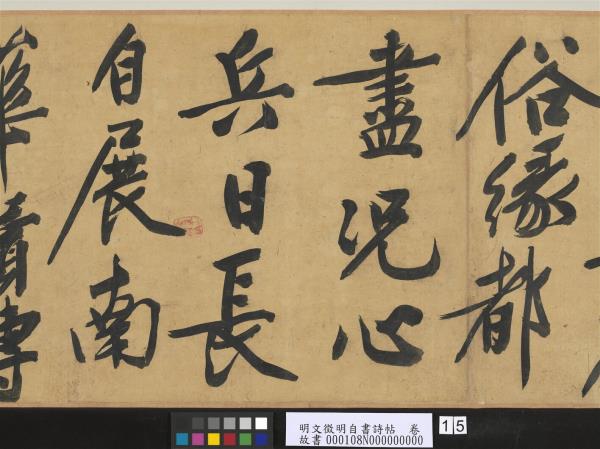 俗緣都
盡況心
兵日長
自展南
華
明文徵明自書詩帖　卷
故書000108N000000000
15